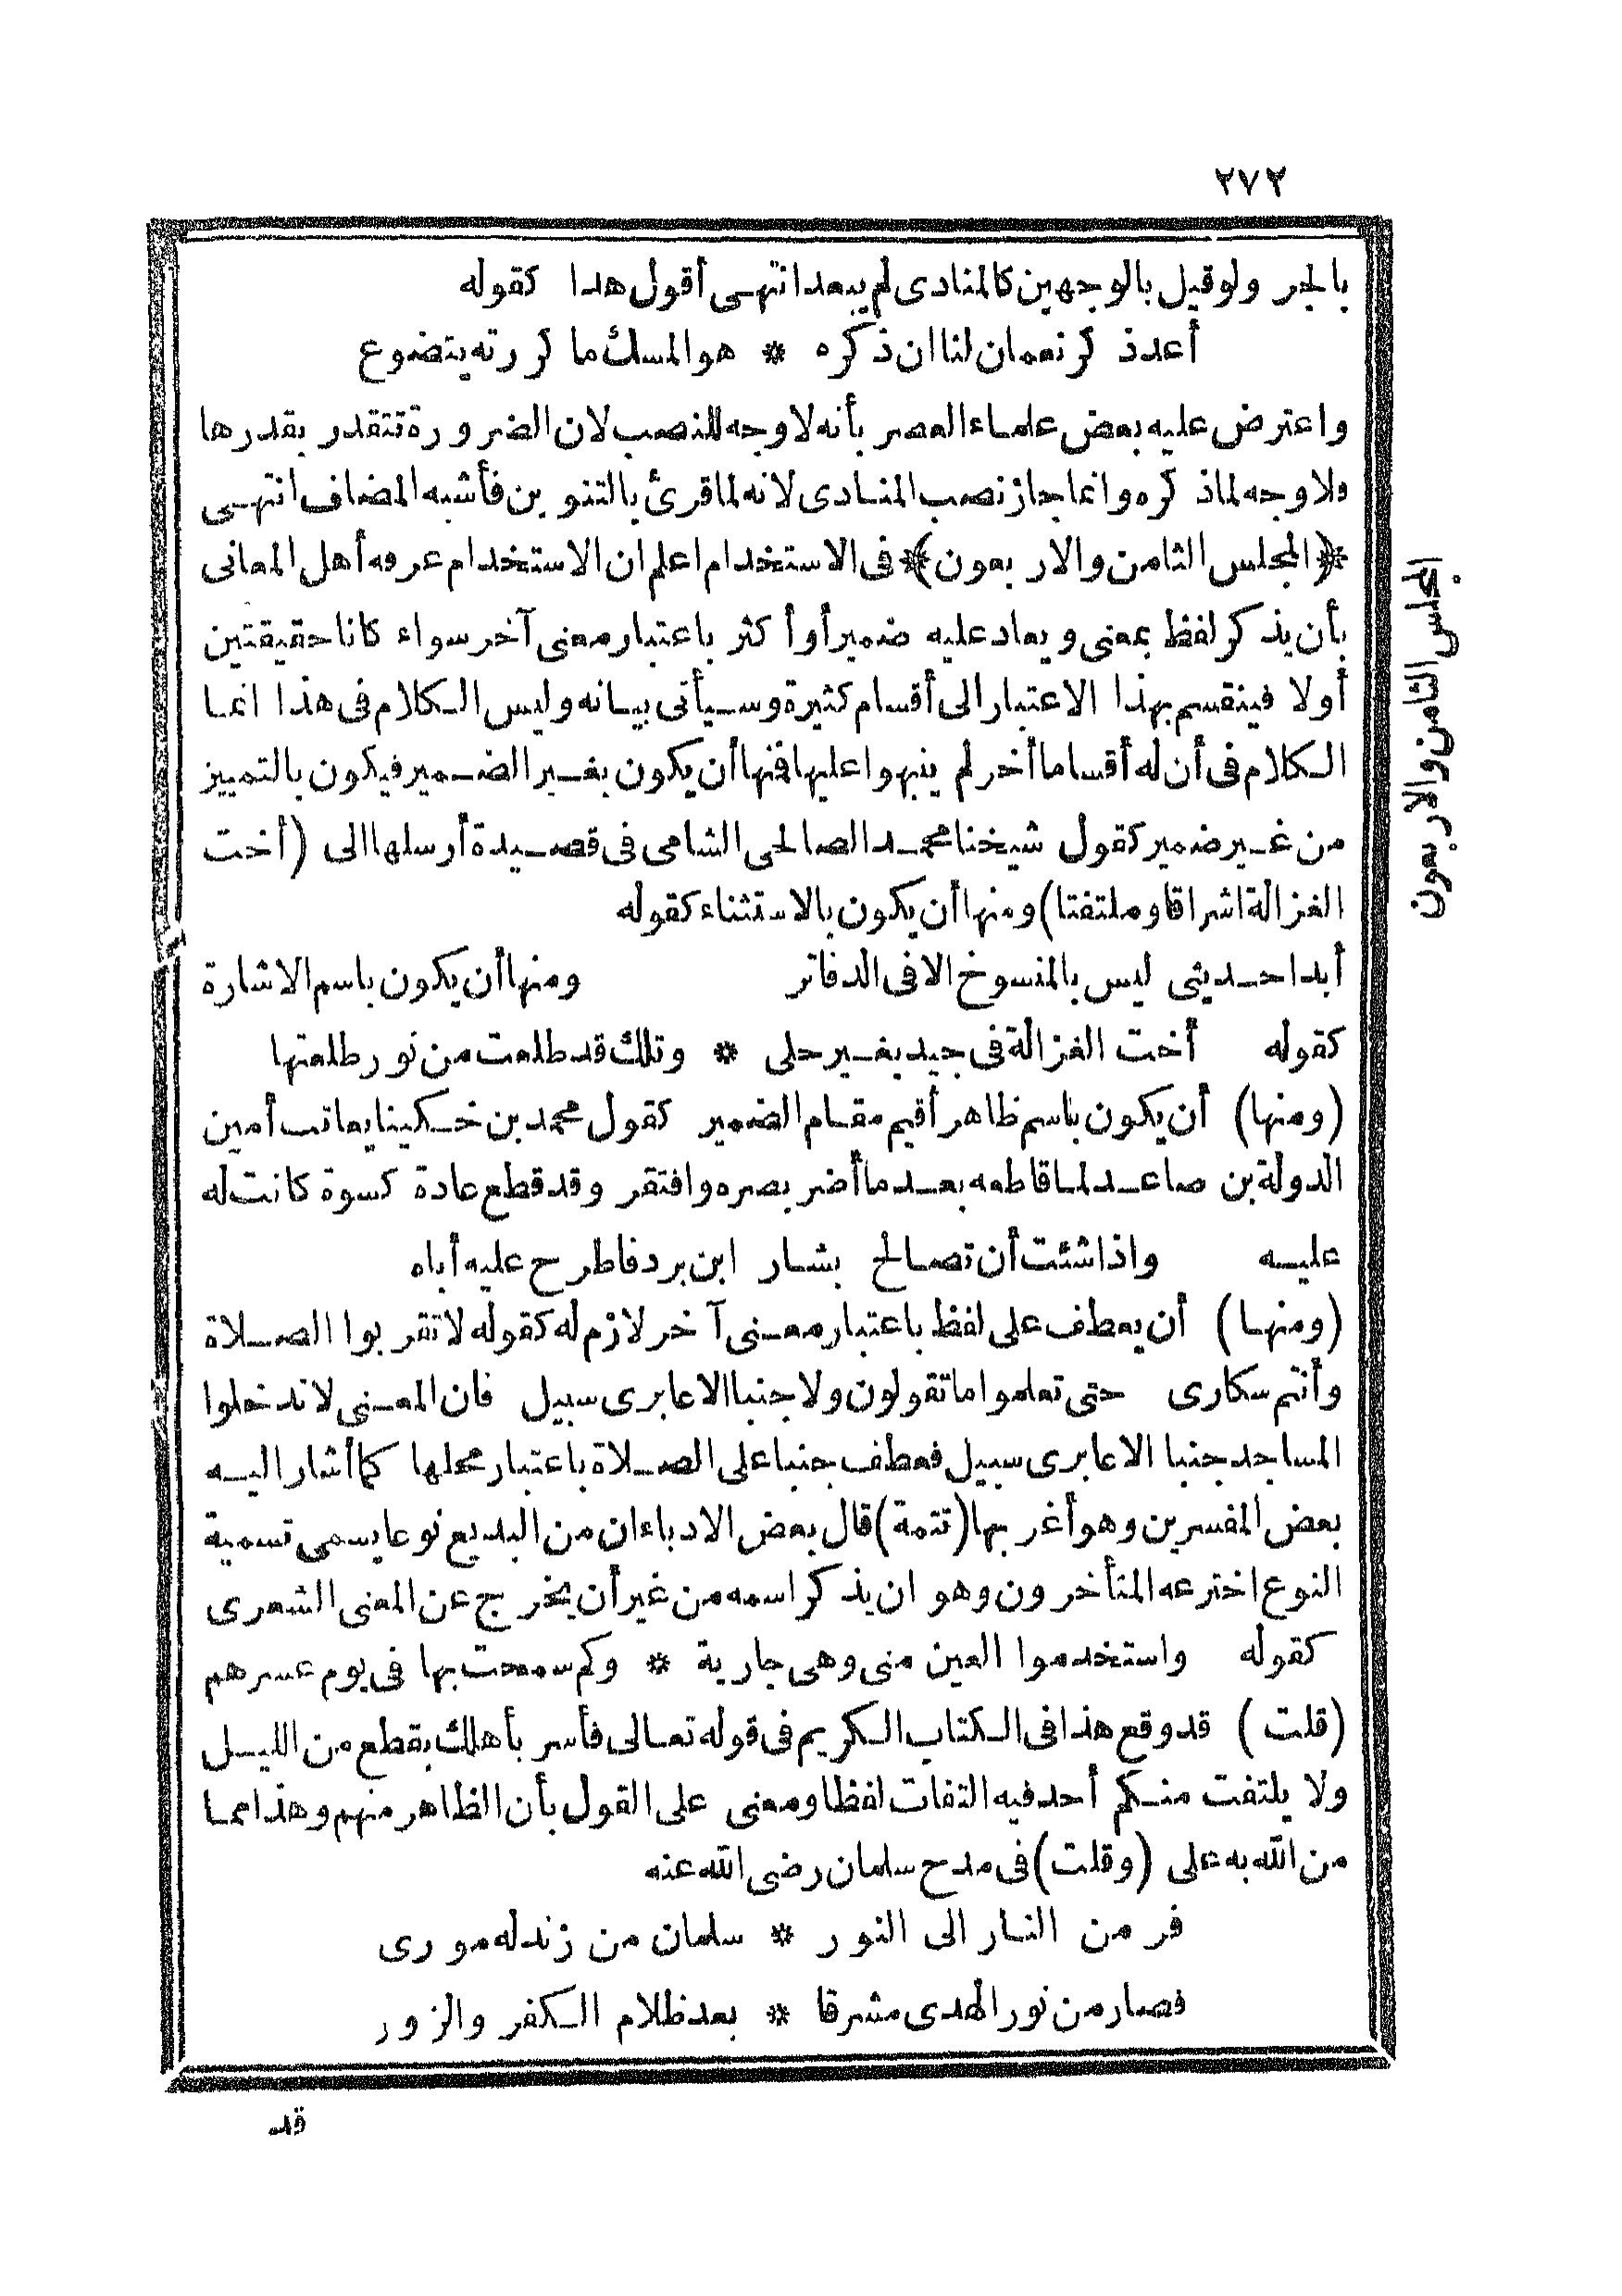 ٢٧٢
بالجر ولو قيل بالوجهين كالمنادى لم يبعد انتهى أقول هذا كقوله
أعد ذكر نعمان لنا ان ذكره * هو المسك ما كررته يتضوع
واعترض عليه بعض علماء العصر بأنه لا وجه للنصب لان الضرورة تتقدر بقدرها
ولا وجه لما ذكره وانما جاز نصب المنادى لانه لما قرئ بالتنوين فأشبه المضاف انتهى
﴿المجلس الثامن والاربعون﴾ فى الاستخدام اعلم ان الاستخدام عرفه أهل المعانى
بأن يذكر لفظ بمعنى ويعاد عليه ضمير أو أكثر باعتبار معنى آخر سواء كانا حقيقتين
أولا فينقسم بهذا الاعتبار الى أقسام كثيرة وسيأتى بيانه وليس الكلام فى هذا انما
الكلام فى أن له أقساما أخر لم ينبهوا عليها فمنها أن يكون بغير الضمير فيكون بالتمييز
من غير ضمير كقول شيخنا محمد الصالحى الشامى فى قصيدة أرسلها الى (أخت
الغزالة اشراقا وملتفتا) ومنها أن يكون بالاستثناء كقوله
أبدا حديثى ليس بالمنسوخ الا فى الدفاتر ومنها أن يكون باسم الاشارة
كقوله أخت الغزالة فى جيد بغير حلى * وتلك قد طلعت من نور طلعتها
(ومنها) أن يكون باسم ظاهر أقيم مقام الضمير كقول محمد بن خكينا يعاتب أمين
الدولة بن صاعد لما قاطعه بعد ما أضر بصره وافتقر وقد قطع عادة كسوة كانت له
عليه واذا شئت أن تصالح بشار ابن برد فاطرح عليه أباه
(ومنها) أن يعطف على لفظ باعتبار معنى آخر لازم له كقوله لا تقربوا الصلاة
وأنتم سكارى حتى تعلموا ما تقولون ولا جنبا الا عابرى سبيل فان المعنى لا تدخلوا
المساجد جنبا الا عابرى سبيل فعطف جنبا على الصلاة باعتبار محلها كما أشار اليه
بعض المفسرين وهو أغربها (تتمة) قال بعض الادباء ان من البديع نوعا يسمى تسمية
النوع اخترعه المتأخرون وهو ان يذكر اسمه من غير أن يخرج عن المعنى الشعرى
كقوله واستخدموا العين منى وهى جارية * وكم سمحت بها فى يوم عسرهم
(قلت) قد وقع هذا فى الكتاب الكريم فى قوله تعالى فأسر بأهلك بقطع من الليل
ولا يلتفت منكم أحد فيه التفات لفظا ومعنى على القول بأن الظاهر منهم وهذا مما
من الله به على (وقلت) فى مدح سلمان رضى الله عنه
فر من النار الى النور * سلمان من زند له مورى
فصار من نور الهدى مشرقا * بعد ظلام الكفر والزور
قد
المجلس الثامن والاربعون